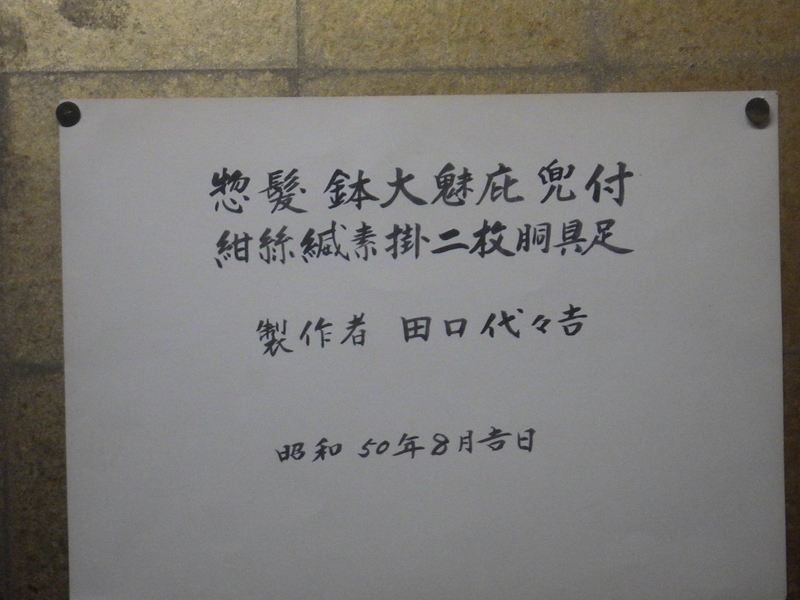 惣髪 鉢大魅庇 兜付
紺絲縅素掛二枚胴具足
製作者 田口代々𠮷
昭和 50年8月𠮷日